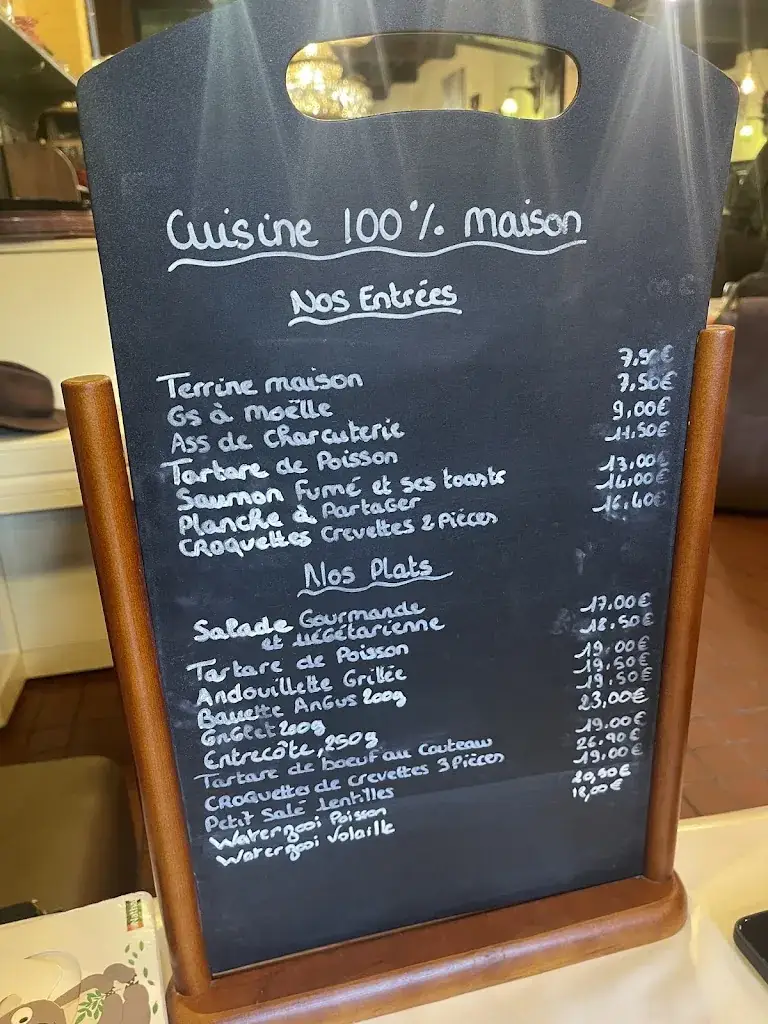 Cuisine 100% Maison
Nos Entrées
Terrine maison 7,50€
Os à moëlle 7,50€
Ass de charcuterie 9,00€
Tartare de Poisson 11.50€
Saumon Fumé et ses toasts 13,00€
Planche à Partager 16,00€
CROQUETTES Crevettes 2 Pièces 16,40€
Nos Plats
Salade Gourmande 17.00€
et végétarienne
Tartare de Poisson 18.50€
Andouillette Grillée 19,00€
Bavette Angus 200g 19,50€
Onglet 200g 19.50€
Entrecôte, 250g 23,00€
Tartare de boeuf au Couteau 19.00€
CROQUETTES de crevettes 3 Pièces 26.90€
Petit Salé lentilles 19,00€
Waterzooi Poisson 20,50€
Waterzooi Volaille 18,00€